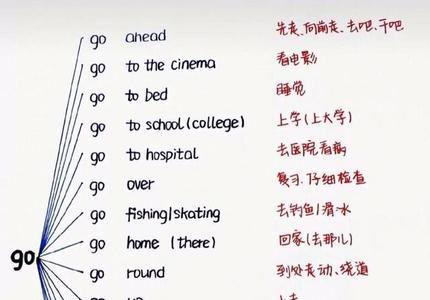 go ahead 先走、向前走、去吧、干吧
go to the cinema 看电影
go to bed 睡觉
go to school (college) 上学(上大学)
go to hospital 去医院看病
go over 复习、仔细检查
go fishing/skating 去钓鱼/滑冰
go home (there) 回家(去那儿)
go
go round 到处走动、绕道